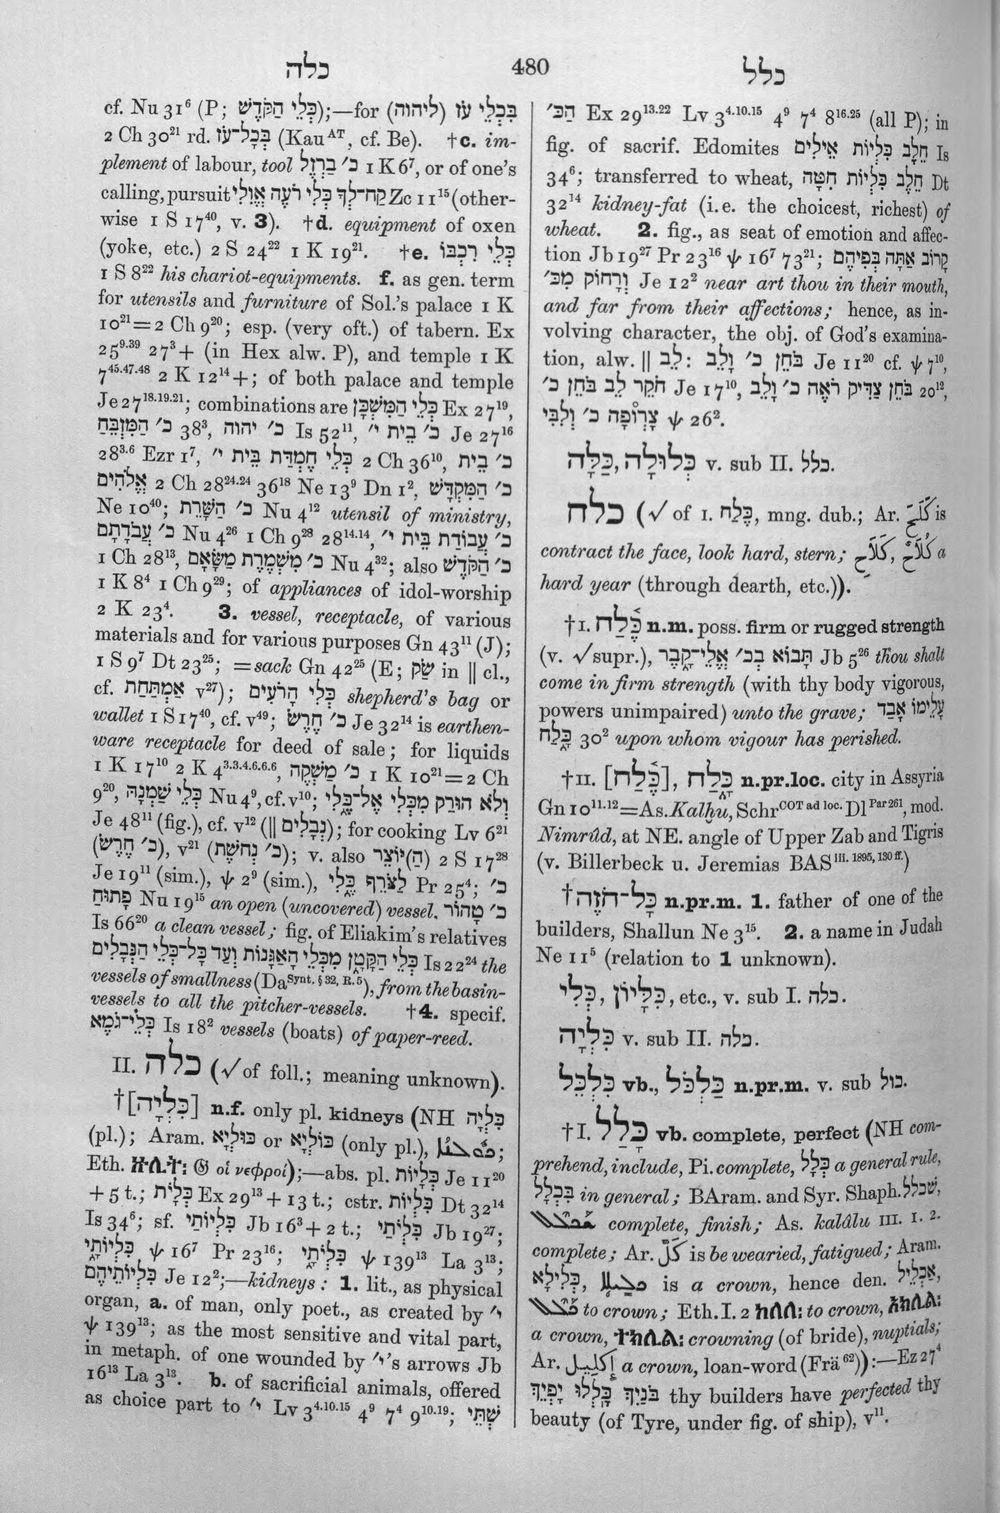 כלה
480
כלל
cf. Nu 31⁶ (P; כְּלֵי הַקֹּדֶשׁ);—for (ליהוה) בִּכְלֵי עֹז
2 Ch 30²¹ rd. בְּכָל־עֹז (Kau ᴬᵀ, cf. Be). †c. im-
plement of labour, tool כ׳ בַרְזֶל 1 K 6⁷, or of one's
calling, pursuit קַח־לְךָ כְּלִי רֹעֶה אֱוִלִי Zc 11¹⁵ (other-
wise 1 S 17⁴⁰, v. 3). †d. equipment of oxen
(yoke, etc.) 2 S 24²² 1 K 19²¹. †e. כְּלֵי רִכְבּוֹ
1 S 8²² his chariot-equipments. f. as gen. term
for utensils and furniture of Sol.'s palace 1 K
10²¹=2 Ch 9²⁰; esp. (very oft.) of tabern. Ex
25⁹·³⁹ 27³+ (in Hex alw. P), and temple 1 K
7⁴⁵·⁴⁷·⁴⁸ 2 K 12¹⁴+; of both palace and temple
Je 27¹⁸·¹⁹·²¹; combinations are כְּלֵי הַמִּשְׁכָּן Ex 27¹⁹,
כ׳ הַמִּזְבֵּחַ 38³, כ׳ יהוה Is 52¹¹, כ׳ בֵית י״ Je 27¹⁶
28³·⁶ Ezr 1⁷, כְּלֵי חֶמְדַּת בֵּית י״ 2 Ch 36¹⁰, כ׳ בֵית
אֱלֹהִים 2 Ch 28²⁴·²⁴ 36¹⁸ Ne 13⁹ Dn 1², כ׳ הַמִּקְדָּשׁ
Ne 10⁴⁰; כ׳ הַשָּׁרֵת Nu 4¹² utensil of ministry,
כ׳ עֲבֹדָתָם Nu 4²⁶ 1 Ch 9²⁸ 28¹⁴·¹⁴, כ׳ עֲבוֹדַת בֵּית י״
1 Ch 28¹³, כ׳ מִשְׁמֶרֶת מַשָּׂאָם Nu 4³²; also כ׳ הַקֹּדֶשׁ
1 K 8⁴ 1 Ch 9²⁹; of appliances of idol-worship
2 K 23⁴. 3. vessel, receptacle, of various
materials and for various purposes Gn 43¹¹ (J);
1 S 9⁷ Dt 23²⁵; =sack Gn 42²⁵ (E; שַׂק in || cl.,
cf. אַמְתַּחַת v²⁷); כְּלִי הָרֹעִים shepherd's bag or
wallet 1 S 17⁴⁰, cf. v⁴⁹; כ׳ חֶרֶשׂ Je 32¹⁴ is earthen-
ware receptacle for deed of sale; for liquids
1 K 17¹⁰ 2 K 4³·³·⁴·⁶·⁶·⁶, כ׳ מַשְׁקֶה 1 K 10²¹=2 Ch
9²⁰, כְּלֵי שַׁמְנָהּ Nu 4⁹, cf. v¹⁰; וְלֹא הוּרַק מִכְּלִי אֶל־כֶּלִי
Je 48¹¹ (fig.), cf. v¹² (|| נְבָלִים); for cooking Lv 6²¹
(כ׳ חֶרֶשׂ), v²¹ (כ׳ נְחֹשֶׁת); v. also (הַ)יוֹצֵר 2 S 17²⁸
Je 19¹¹ (sim.), ψ 2⁹ (sim.), לַצֹּרֵף כֶּלִי Pr 25⁴; כ׳
פָתוּחַ Nu 19¹⁵ an open (uncovered) vessel. כ׳ טָהוֹר
Is 66²⁰ a clean vessel; fig. of Eliakim's relatives
כְּלֵי הַקָּטָן מִכְּלֵי הָאַגָּנוֹת וְעַד כָּל־כְּלֵי הַנְּבָלִים Is 22²⁴ the
vessels of smallness (Da ˢʸⁿᵗ· § ³²· ᴿ· ⁵), from the basin-
vessels to all the pitcher-vessels. †4. specif.
כְּלֵי־גֹמֶא Is 18² vessels (boats) of paper-reed.
II. כלה (√ of foll.; meaning unknown).
†[כִּלְיָה] n.f. only pl. kidneys (NH כִּלְיָה
(pl.); Aram. כּוּלְיָא or כּוֹלְיָא (only pl.), ܟܘܠܝܬܐ;
Eth. ኵሊት፡ 𝔊 οἱ νεφροί);—abs. pl. כְּלָיוֹת Je 11²⁰
+5 t.; כְּלָיֹת Ex 29¹³+13 t.; cstr. כִּלְיוֹת Dt 32¹⁴
Is 34⁶; sf. כִּלְיוֹתַי Jb 16³+2 t.; כִלְיֹתַי Jb 19²⁷;
כִּלְיוֹתָי ψ 16⁷ Pr 23¹⁶; כִּלְיֹתָי ψ 139¹³ La 3¹³;
כִּלְיוֹתֵיהֶם Je 12²;—kidneys: 1. lit., as physical
organ, a. of man, only poet., as created by י״
ψ 139¹³; as the most sensitive and vital part,
in metaph. of one wounded by י״'s arrows Jb
16¹³ La 3¹³. b. of sacrificial animals, offered
as choice part to י״ Lv 3⁴·¹⁰·¹⁵ 4⁹ 7⁴ 9¹⁰·¹⁹; שְׁתֵּי
הַכּ׳ Ex 29¹³·²² Lv 3⁴·¹⁰·¹⁵ 4⁹ 7⁴ 8¹⁶·²⁵ (all P); in
fig. of sacrif. Edomites חֵלֶב כִּלְיוֹת אֵילִים Is
34⁶; transferred to wheat, חֵלֶב כִּלְיוֹת חִטָּה Dt
32¹⁴ kidney-fat (i.e. the choicest, richest) of
wheat. 2. fig., as seat of emotion and affec-
tion Jb 19²⁷ Pr 23¹⁶ ψ 16⁷ 73²¹; קָרוֹב אַתָּה בְּפִיהֶם
וְרָחוֹק מִכּ׳ Je 12² near art thou in their mouth,
and far from their affections; hence, as in-
volving character, the obj. of God's examina-
tion, alw. || לֵב: בֹּחֵן כ׳ וָלֵב Je 11²⁰ cf. ψ 7¹⁰,
חֹקֵר לֵב בֹּחֵן כ׳ Je 17¹⁰, בֹּחֵן צַדִּיק רֹאֶה כ׳ וָלֵב 20¹²,
צָרְופָה כ׳ וְלִבִּי ψ 26².
כְּלוּלָה, כַּלָּה v. sub II. כלל.
כלח (√ of 1. כֶּלַח, mng. dub.; Ar. كَلَحَ is
contract the face, look hard, stern; كُلَاح, كُلَاحِ a
hard year (through dearth, etc.)).
†I. כֶּלַח n.m. poss. firm or rugged strength
(v. √supr.), תָּבוֹא בְכ׳ אֱלֵי־קָבֶר Jb 5²⁶ thou shalt
come in firm strength (with thy body vigorous,
powers unimpaired) unto the grave; עָלֵימוֹ אָבַד
כָּלַח 30² upon whom vigour has perished.
†II. [כֶּלַח], כָּלַח n.pr.loc. city in Assyria
Gn 10¹¹·¹²=As. Kalḫu, Schr ᶜᴼᵀ ᵃᵈ ˡᵒᶜ· Dl ᴾᵃʳ ²⁶¹, mod.
Nimrûd, at NE. angle of Upper Zab and Tigris
(v. Billerbeck u. Jeremias BAS ᴵᴵᴵ· ¹⁸⁹⁵, ¹³⁰ ᶠᶠ·)
†כָּל־חֹזֶה n.pr.m. 1. father of one of the
builders, Shallun Ne 3¹⁵. 2. a name in Judah
Ne 11⁵ (relation to 1 unknown).
כְּלִי, כִּלָּיוֹן, etc., v. sub I. כלה.
כִּלְיָה v. sub II. כלה.
כִּלְכֵּל vb., כַּלְכֹּל n.pr.m. v. sub כול.
†I. כָּלַל vb. complete, perfect (NH com-
prehend, include, Pi. complete, כְּלָל a general rule,
בִּכְלָל in general; BAram. and Syr. Shaph. שַׁכְלֵל,
ܫܟܠܠ complete, finish; As. kalâlu III. I. 2.
complete; Ar. كَلَّ is be wearied, fatigued; Aram.
כְּלִילָא, ܟܠܝܠܐ is a crown, hence den. אַכְלֵיל,
ܟܠܠ to crown; Eth. I. 2 ከለለ፡ to crown, አክሊል፡
a crown, ተከለለ፡ crowning (of bride), nuptials;
Ar. إِكْلِيل a crown, loan-word (Frä ⁶²)):—Ez 27⁴
בֹּנַיִךְ כָּלְלוּ יָפְיֵךְ thy builders have perfected thy
beauty (of Tyre, under fig. of ship), v¹¹.